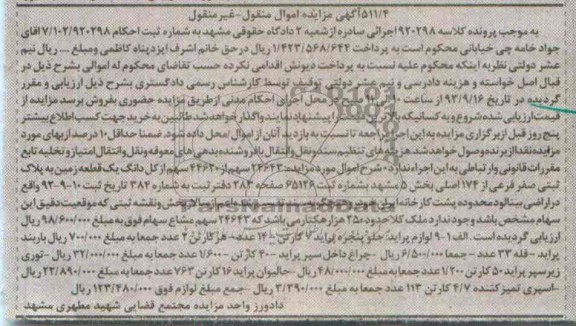 ۵۱۱/۴آگهی مزایده اموال منقول-غیر منقول
به موجب پرونده کلاسه ۹۲۰۲۹۸ اجرائی صادره از شعبه ۲ دادگاه حقوقی مشهد به شماره ثبت احکام ۷/۱۰۲/۹۲۰۲۹۸ آقای
جواد خامه چی خیابانی محکوم است به پرداخت ۱/۴۲۳/۵۶۸/۶۴۴ ریال در حق خانم اشرف ایزدپناه کاظمی ومبلغ ... ریال نیم
عشر دولتی نظر به اینکه محکوم علیه نسبت به پرداخت دیونش اقدامی نکرده حسب تقاضای محکوم له اموالی بشرح ذیل در
قبال اصل خواسته و هزینه دادرسی و نیم عشر دولتی توقیف توسط کارشناس رسمی دادگستری بشرح ذیل ارزیابی و مقرر
گردیده در تاریخ ۹۳/۹/۱۶ از ساعت محل اجرای احکام مدنی از طریق مزایده حضوری بفروش برسد مزایده از
قیمت ارزیابی شده شروع و به کسانیکه بالاترین پیشنهاد نمایند واگذار خواهد شد طالبین به خرید جهت کسب اطلاع بیشتر
پنج روز قبل از برگزاری مزایده به این اجرا مراجعه تا نسبت به بازدید آنان از اموال محل داده شود. ضمنا حداقل ۱۰ درصد از بهای مورد
مزایده نقدا از برنده وصول خواهد شد. هزینه های تنظیم سند ونقل وانتقال با فروشنده بدهی های معوقه و نقل وانتقال امتیاز و تخلیه تابع
مقررات قانونی و ارتباطی به این اجراء ندارد - شرح اموال مورد مزایده: ۲۴۶۴۳ سهم از ۴۴۶۲۰ سهم از کل دانگ یک قطعه زمین به پلاک
ثبتی صفر فرعی از ۱۷۴ اصلی بخش ۵ مشهد بشماره ثبت ۶۵۱۲۸ صفحه ۲۸۳ دفتر ثبت به شماره ۳۸۴ تاریخ ثبت ۱۰-۹-۹۲ واقع
در اراضی بینالود محدوده پشت کارخانه ونقشه ثبتی که موقعیت دقیق این
سهام مشخص باشد وجود ندارد ملک کلا حدود ۲۵۰ هزار هکتار می باشد که ۲۴۶۴۳ سهم مشاع سهام فوق به مبلغ ۹۸/۶۰۰/۰۰۰ ریال
ارزیابی گردیده است. الف ۱-۹ لوازم پراید جلو پنجره پراید ۷ کارتن ۱۴ عدد- هر کارتن ۲ عدد جمعا به مبلغ ۷۰۰/۰۰۰ ریال باربند
پراید - فله ۳۳ عدد - جمعا ۶/۵۰۰/۰۰۰ ریال -چراغ داخل سپر پراید ۴۰ کارتن - ۱/۶۰۰ عدد جمعا به مبلغ ۳۲/۰۰۰/۰۰۰ ریال -توری
زیرسپر پراید ۵۰ کارتن ۱/۲۰۰ عدد جمعا به مبلغ ۴۸/۰۰۰/۰۰۰ ریال -جالیوان پراید ۱۶ کارتن ۷۶۳ عدد جمعا به مبلغ ۲۲/۸۹۰/۰۰۰ ریال
-اسپری تمیز کننده ۴/۷ کارتن ۱۱۳ عدد جمعا به مبلغ ۳/۳۹۰/۰۰۰ ریال -جمع مبلغ لوازم فوق ۱۲۳/۴۸۰/۰۰۰ ریال
دادورز واحد مزایده مجتمع قضایی شهید مطهری مشهد